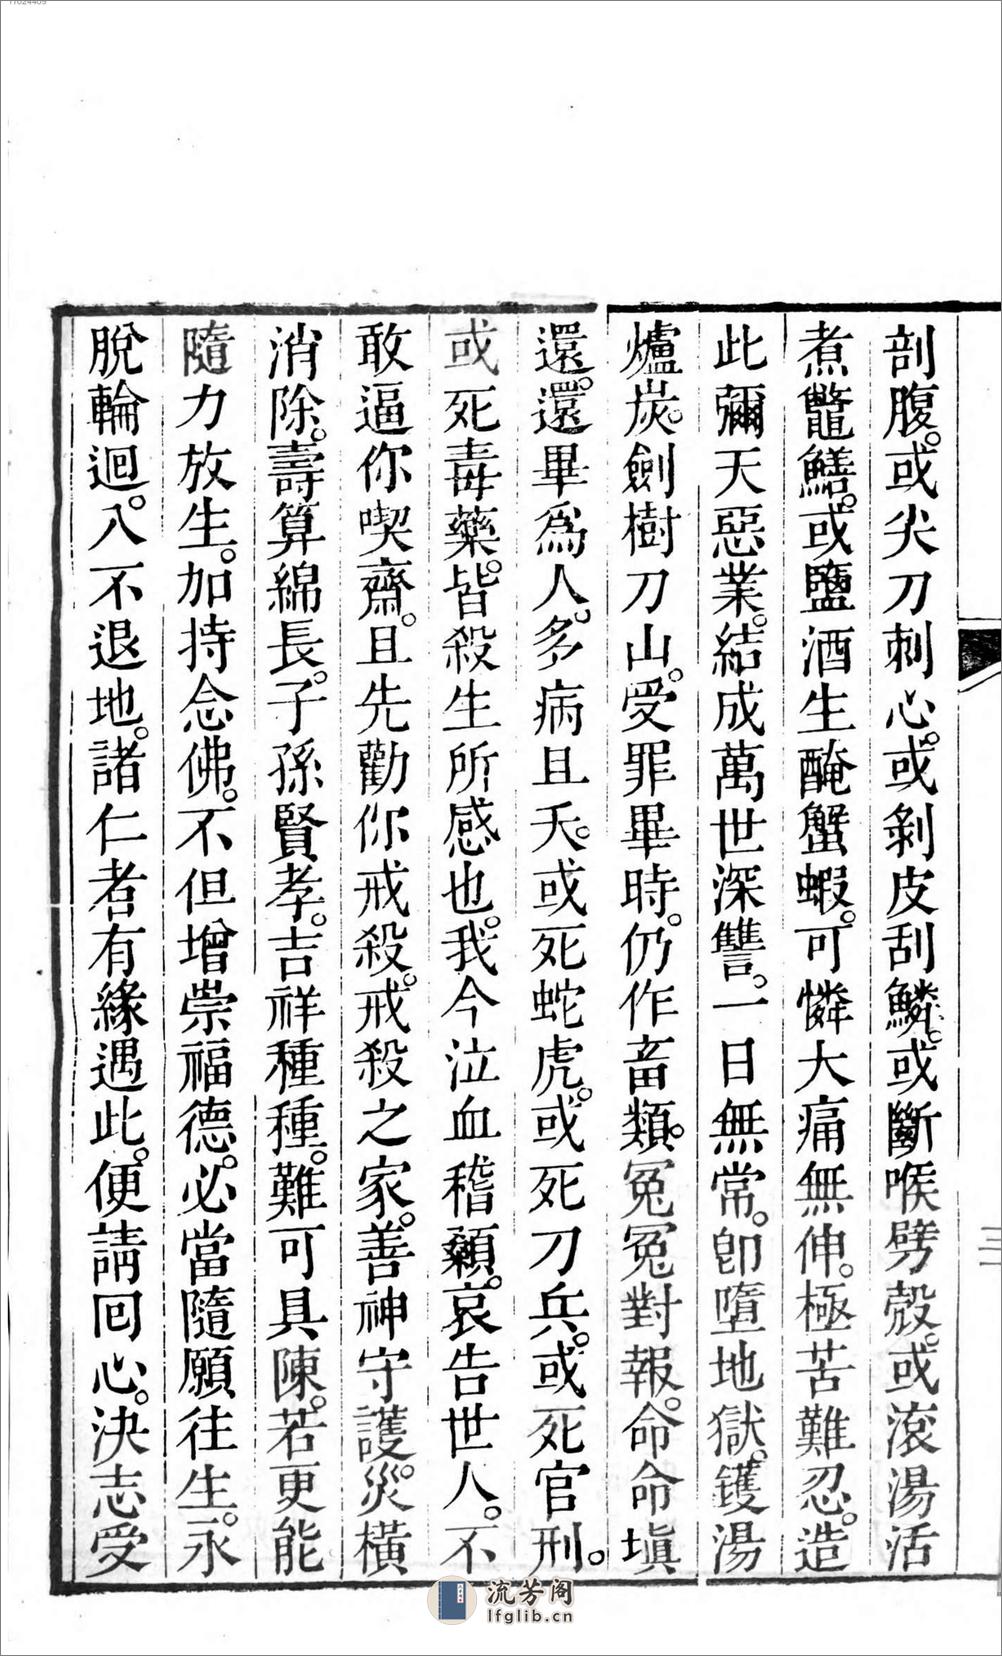 11024409
剖腹。或尖刀刺心。或剝皮刮鱗。或斷喉劈殼。或滾湯活
煮鼈鱔。或鹽酒生醃蟹蝦。可憐大痛無伸。極苦難忍。造
此彌天惡業。結成萬世深讐。一日無常。卽墮地獄。鑊湯
爐炭。劍樹刀山。受罪畢時。仍作畜類。冤冤對報。命命塡
還。還畢爲人。多病且夭。或死蛇虎。或死刀兵。或死官刑。
或死毒藥。皆殺生所感也。我今泣血稽顙。哀告世人。不
敢逼你喫齋。且先勸你戒殺。戒殺之家。善神守護。災橫
消除。壽算綿長。子孫賢孝。吉祥種種。難可具陳。若更能
隨力放生。加持念佛。不但增崇福德。必當隨願往生。永
脫輪迴。入不退地。諸仁者有緣遇此。便請囘心。決志受
流芳阁
lfglib.cn